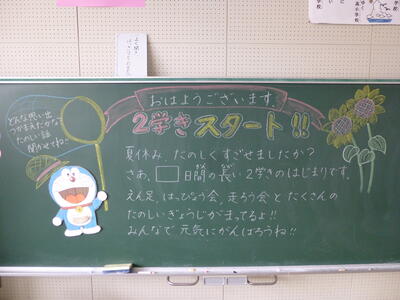 おはようございます。
2学きスタート!!
どんな思い出
つかまえたかな?
たのしい話
聞かせてね♪
夏休み、たのしくすごせましたか?
さあ、□日間の長い2学きのはじまりです。
えん足、はっぴょう会、走ろう会とたくさんの
たのしいぎょうじがまってるよ!!
みんなで元気にがんばろうね!!